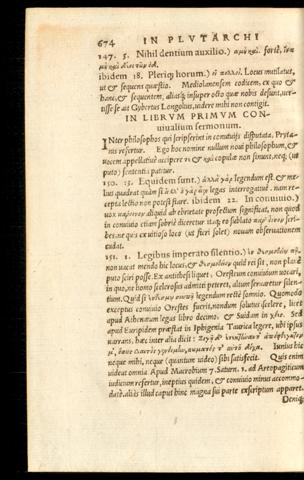 674 IN PLVTARCHI
147. 5. Nihil dentium auxilio.) forte,
ibidem 18. Pleriq; horum.) οἱ πολλοί. Locus mutilatus,
ut & sequens quæstio. Mediolanensem codicem, ex quo &
hanc, & sequentem, aliasq; insuper octo quæ nobis desunt, uer-
tisse se ait Gybertus Longolius, uidere mihi non contigit.
IN LIBRVM PRIMVM CON-
uiualium sermonum.
INter philosophos qui scripserint in conuiuijs disputata, Pryta-
nis refertur. Ego hoc nomine nullum noui philosophum, &
uocem appellatiue accipere & copulæ non sinunt, neq; (ut
puto) sententia patitur.
150. 15. Equidem sunt.) ἀλλὰ γὰρ legendum est & me-
lius quadrat quàm legas interrogatiuè. nam re-
cepta lectio non potest stare. ibidem 22. In conuiuio.)
aliquid ab ebrietate profectum significat, non quod
in conuiuio etiam sobriè diceretur itaq; eo sublato scri-
bes. ne quis ex uitioso loco (ut fieri solet) nouam obseruationem
cudat.
151. 1. Legibus imperato silentio.)
non uacat mendo hic locus, & quid rei sit, non planè
puto sciri posse. Ex antithesi liquet, Orestem conuiuium uocari,
in quo, ne homo sceleris admisti peteret, altum seruaretur silen-
tium. Quid si legendum rectè somnio. Quomodo
exceptus conuiuio Orestes fuerit, nondum soluitur scelere, licet
apud Athenæum legas libro decimo. & Suidam in χόες. Sed
apud Euripidem præstat in Iphigenia Taurica legere, ubi ipsus
narrans, hæc inter alia dicit:
Iunius hic
neque mihi, neque (quantum uideo) sibi satisfecit. Quis enim
uideat omnia Apud Macrobium 7. Saturn. 1. ad Areopagiticum
iudicium refertur, ineptius quidem, & conuiuio minus accommo-
datè. aliis illud caput hinc magna sui parte exscriptum apparet.
Deniq;